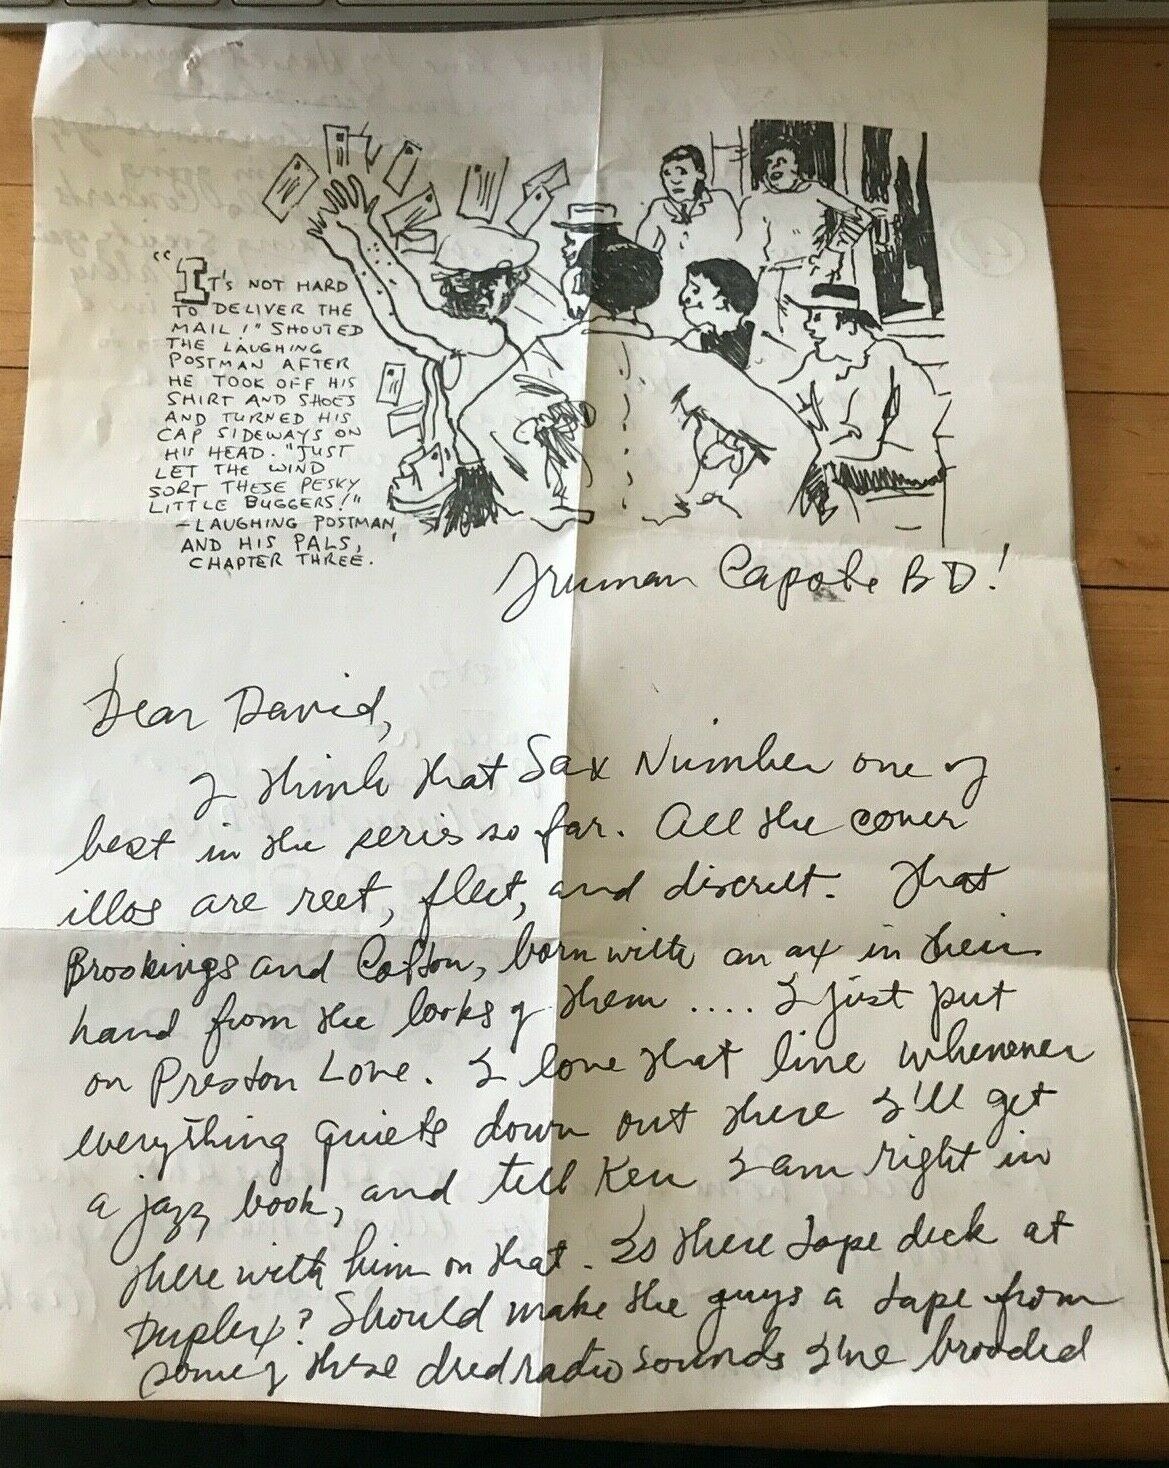 "It's not hard
to deliver the
mail!" shouted
the laughing
postman after
he took off his
shirt and shoes
and turned his
cap sideways on
his head. "Just
let the wind
sort these pesky
little buggers!"
- Laughing Postman
and his pals,
chapter three.
Truman Capote BD!
Dear David,
I think that Sax Number one of
best in the series so far. All the cover
illos are reet, fleet, and discreet. That
Brookings and Colton, born with an ax in their
hand from the looks of them .... I just put
on Preston Love. I love that line whenever
everything quiets down out there I'll get
a jazz book, and tell Ken I am right in
there with him on that. Is there tape deck at
Duplex? Should make the guys a tape from
some of these dred radio sounds I've brooded